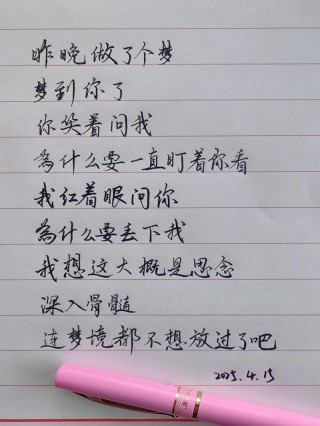 昨晚做了个梦
梦到你了
你笑着问我
為什么要一直盯着你看
我红着眼问你
為什么要丢下我
我想这大概是思念
深入骨髓
连梦境都不想放过了吧
2025.4.15